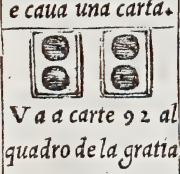 e caua una carta.
Va a carte 92 al
quadro de la gratia